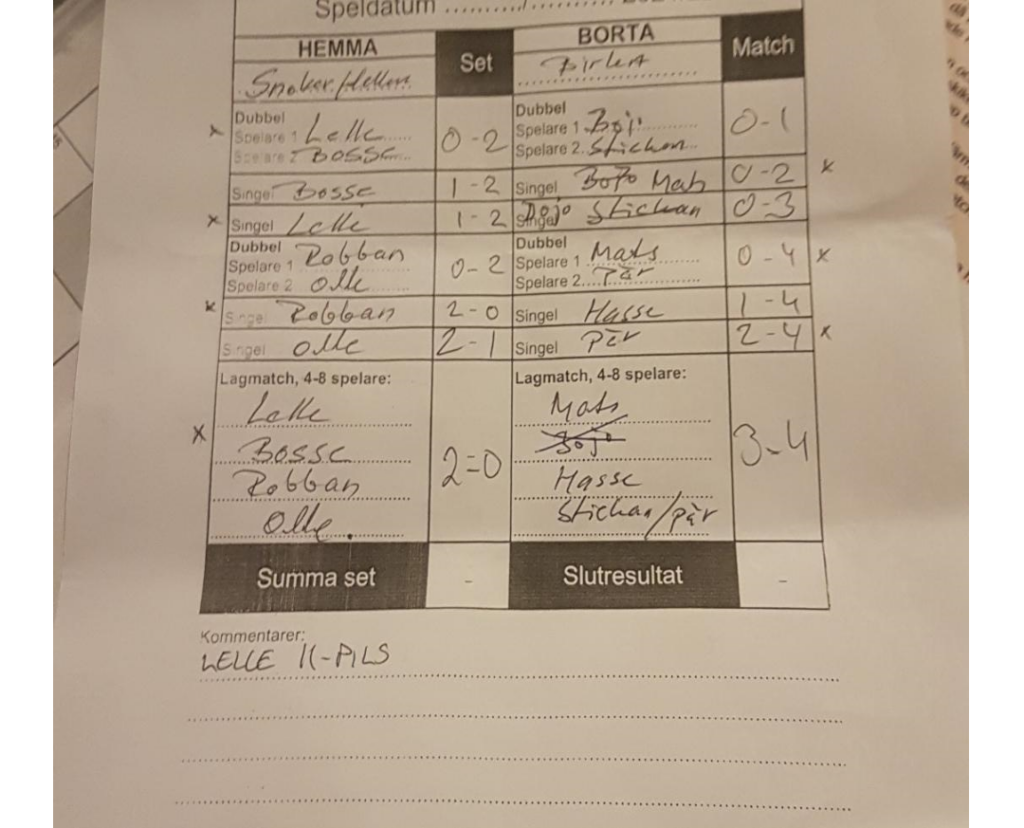 Speldatum ........./.........
HEMMA Set BORTA Match
Snoker/Hallen
x Dubbel
Spelare 1 Lelle 0-2 Dubbel
Spelare 1 Bojo 0-1
Spelare 2 BOSSE Spelare 2 Stickan
Singel Bosse 1-2 Singel Mats 0-2 x
x Singel Lelle 1-2 Singel Stickan 0-3
Dubbel
Spelare 1 Robban 0-2 Dubbel
Spelare 1 Mats 0-4 x
Spelare 2 Olle Spelare 2 Pär
x Singel Robban 2-0 Singel Hasse 1-4
Singel Olle 2-1 Singel Pär 2-4 x
Lagmatch, 4-8 spelare: Lagmatch, 4-8 spelare:
x Lelle 2=0 Mats 3-4
Bosse Bojo
Robban Hasse
Olle. Stickan/Pär
Summa set - Slutresultat -
Kommentarer:
LELLE 11-PILS